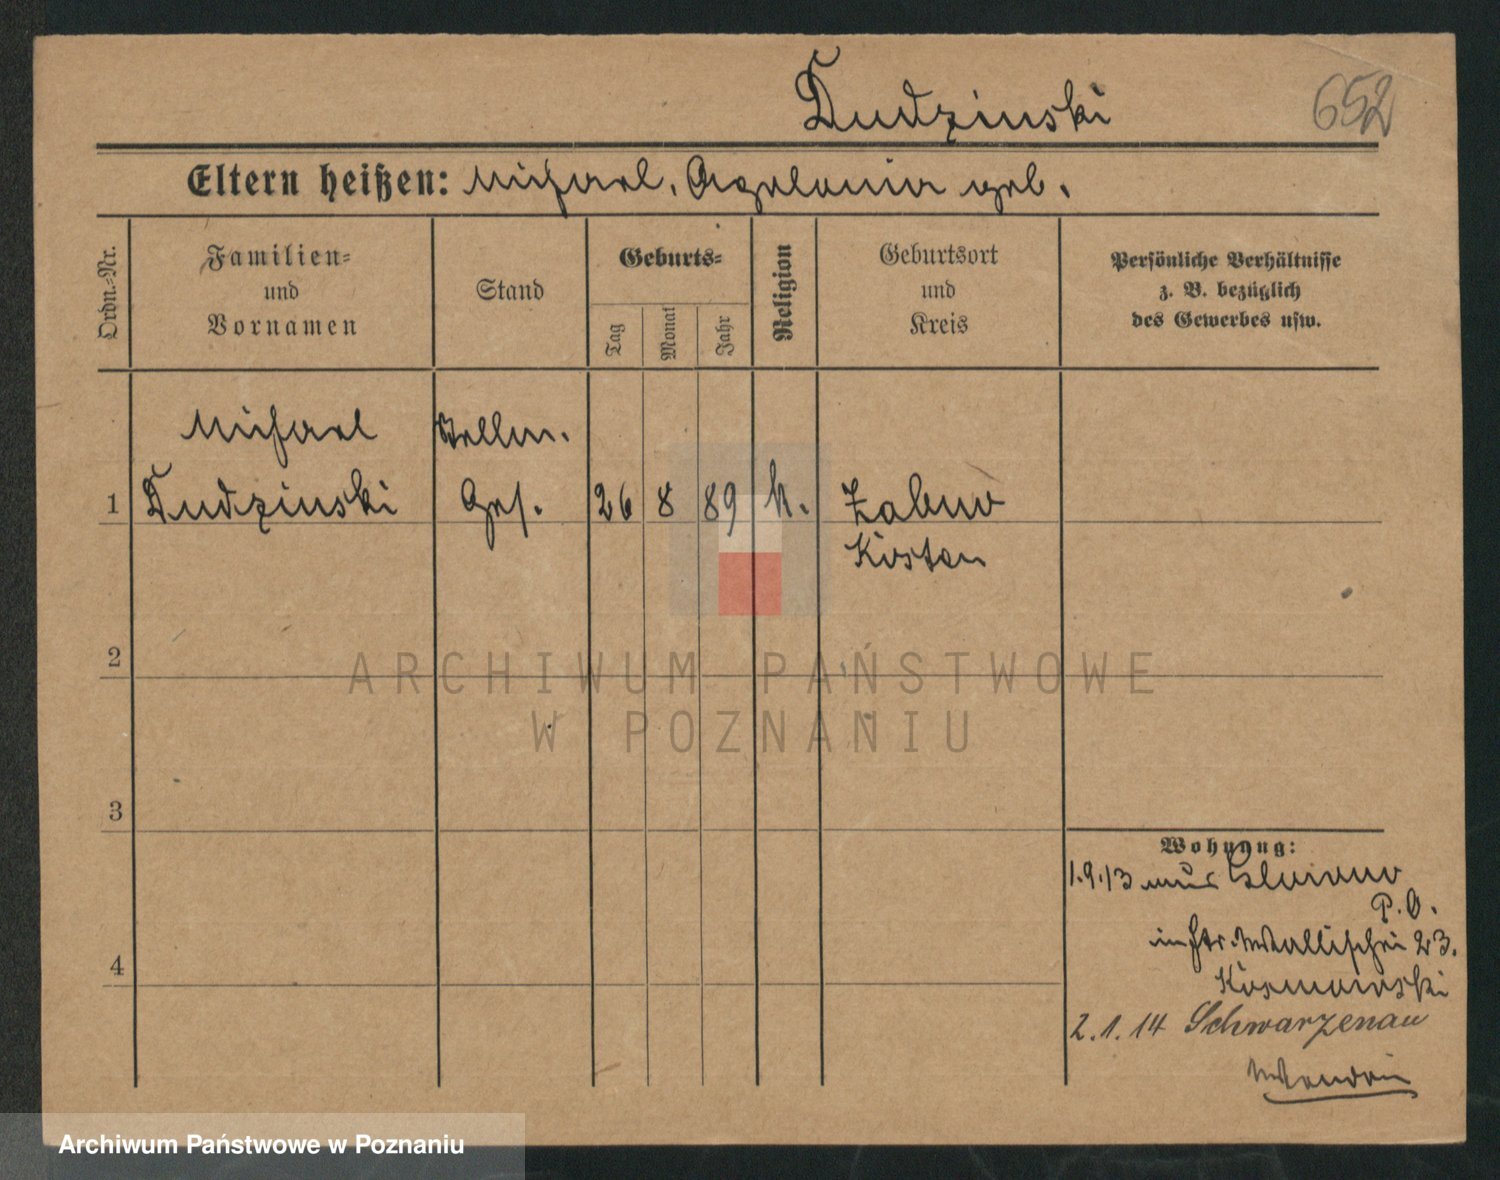 Dudzinski
652
Eltern heißen: Michael, Apolonia geb.
Ordn.-Nr.
Familien-
und
Vornamen
Stand
Geburts-
Tag
Monat
Jahr
Religion
Geburtsort
und
Kreis
Persönliche Verhältnisse
z. B. bezüglich
des Gewerbes usw.
Michael
1 Dudzinski Ges. 26 8 89 k. Zabno
Kosten
2
3
4
Wohnung:
1.9.13 aus
P.O.
Wallischei 23.
2.1.14 Schwarzenau
ARCHIWUM PAŃSTWOWE
W POZNANIU
Archiwum Państwowe w Poznaniu